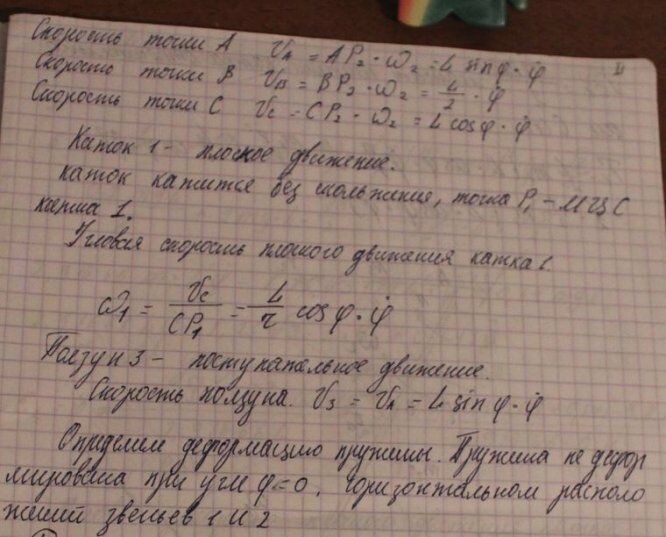 Скорость точки A V_A = AP₂ · ω₂ = L sin φ · φ̇
Скорость точки B V_B = BP₂ · ω₂ = L/2 · φ̇
Скорость точки C V_C = CP₂ · ω₂ = L cos φ · φ̇
Каток 1 – плоское движение.
каток катится без скольжения, точка P₁ – МЦС
катка 1.
Угловая скорость плоского движения катка 1.
ω₁ = V_C / CP₁ = L / r cos φ · φ̇
Ползун 3 – поступательное движение.
Скорость ползуна. V₃ = V_A = L sin φ · φ̇
Определим деформацию пружины. Пружина не дефор
мирована при угле φ = 0, горизонтальном располо
жении звеньев 1 и 2